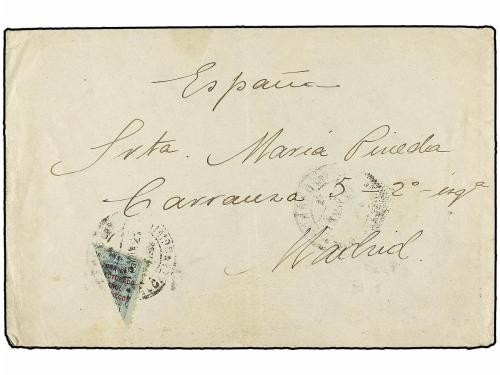 España
Srta. María Pineda
Carranza 5 - 2º - izqª
Madrid.